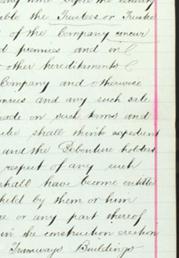 any time before the
able the Trustees or Trustee
of the Company concur
premises and on
other hereditaments
Company and otherwise
and any such sale
made on such terms and
shall think expedient
and the Debenture holders
respect of any such
shall have become entitled
held by them or him
or any part thereof
in the construction erection
Tramways Buildings